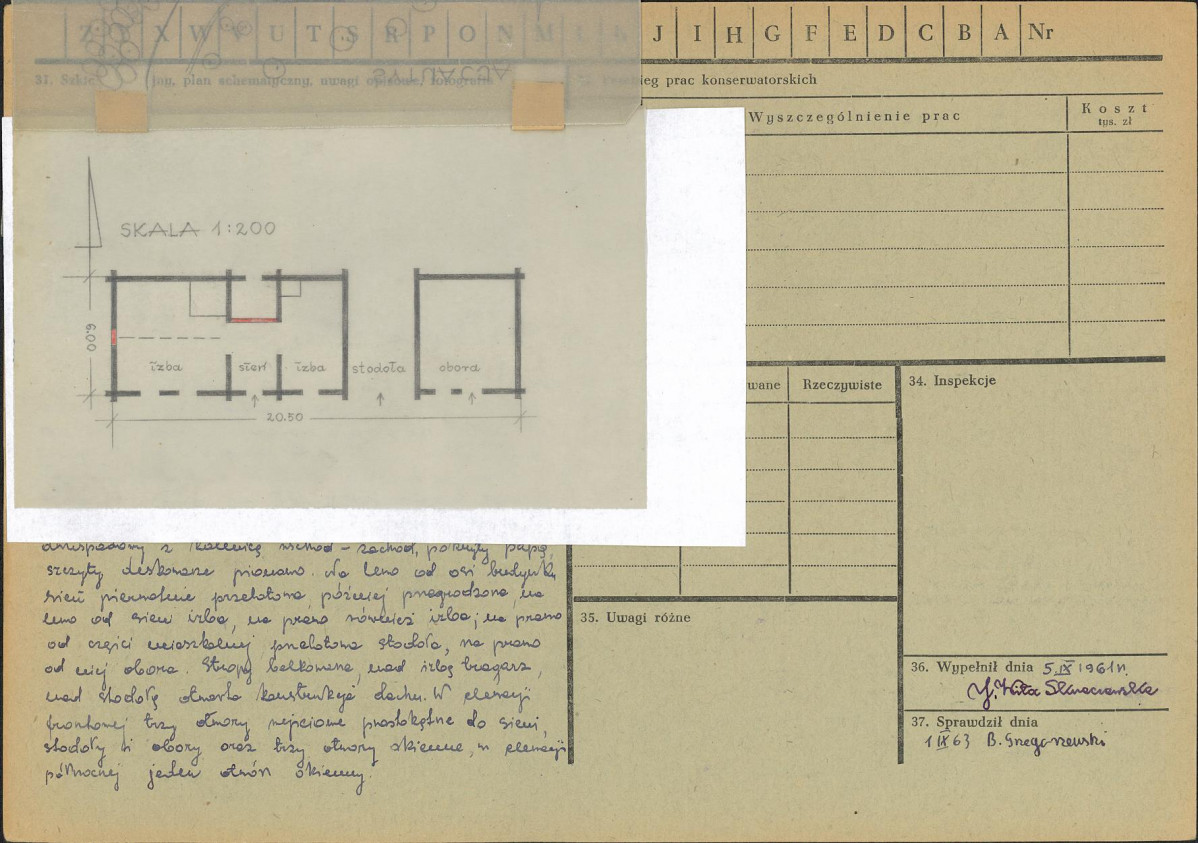 Z X W V U T S R P O N M L K J I H G F E D C B A Nr
37. Szkic jny, plan schematyczny, uwagi opisowe, fotografia
ieg prac konserwatorskich
Wyszczególnienie prac
Koszt
tys. zł
SKALA 1:200
6.00
izba sień izba stodoła obora
20.50
wane Rzeczywiste
34. Inspekcje
dwuspadowy z kalenicą wschód – zachód, pokryty papą,
szczyty deskowane pionowo. Na lewo od osi budynku
sień pierwotnie przelotowa, później przegrodzona, na
lewo od sieni izba, na prawo również izba; na prawo
od części mieszkalnej przelotowa stodoła, na prawo
od niej obora. Stropy belkowane, nad izbą bragarz,
nad stodołę otwarta konstrukcja dachu. W elewacji
frontowej trzy otwory wejściowe prostokątne do sieni,
stodoły i obory oraz trzy otwory okienne, w elewacji
północnej jeden otwór okienny.
35. Uwagi różne
36. Wypełnił dnia 5.IX 1961 r.
37. Sprawdził dnia
1 IX 63 B. Gregorzewski